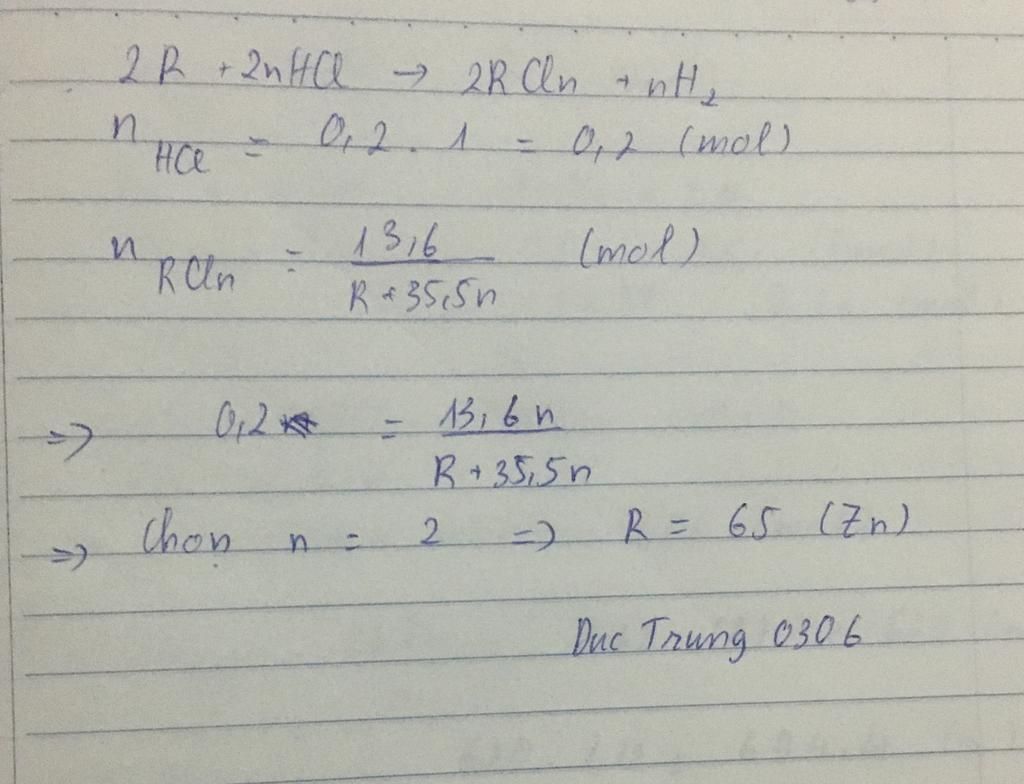 2R + 2nHCl → 2RCln + nH2
nHCl = 0,2 . 1 = 0,2 (mol)
nRCln = 13,6 / R + 35,5n (mol)
=> 0,2 = 13,6n / R + 35,5n
=> Chọn n = 2 => R = 65 (Zn)
Duc Trung 0306